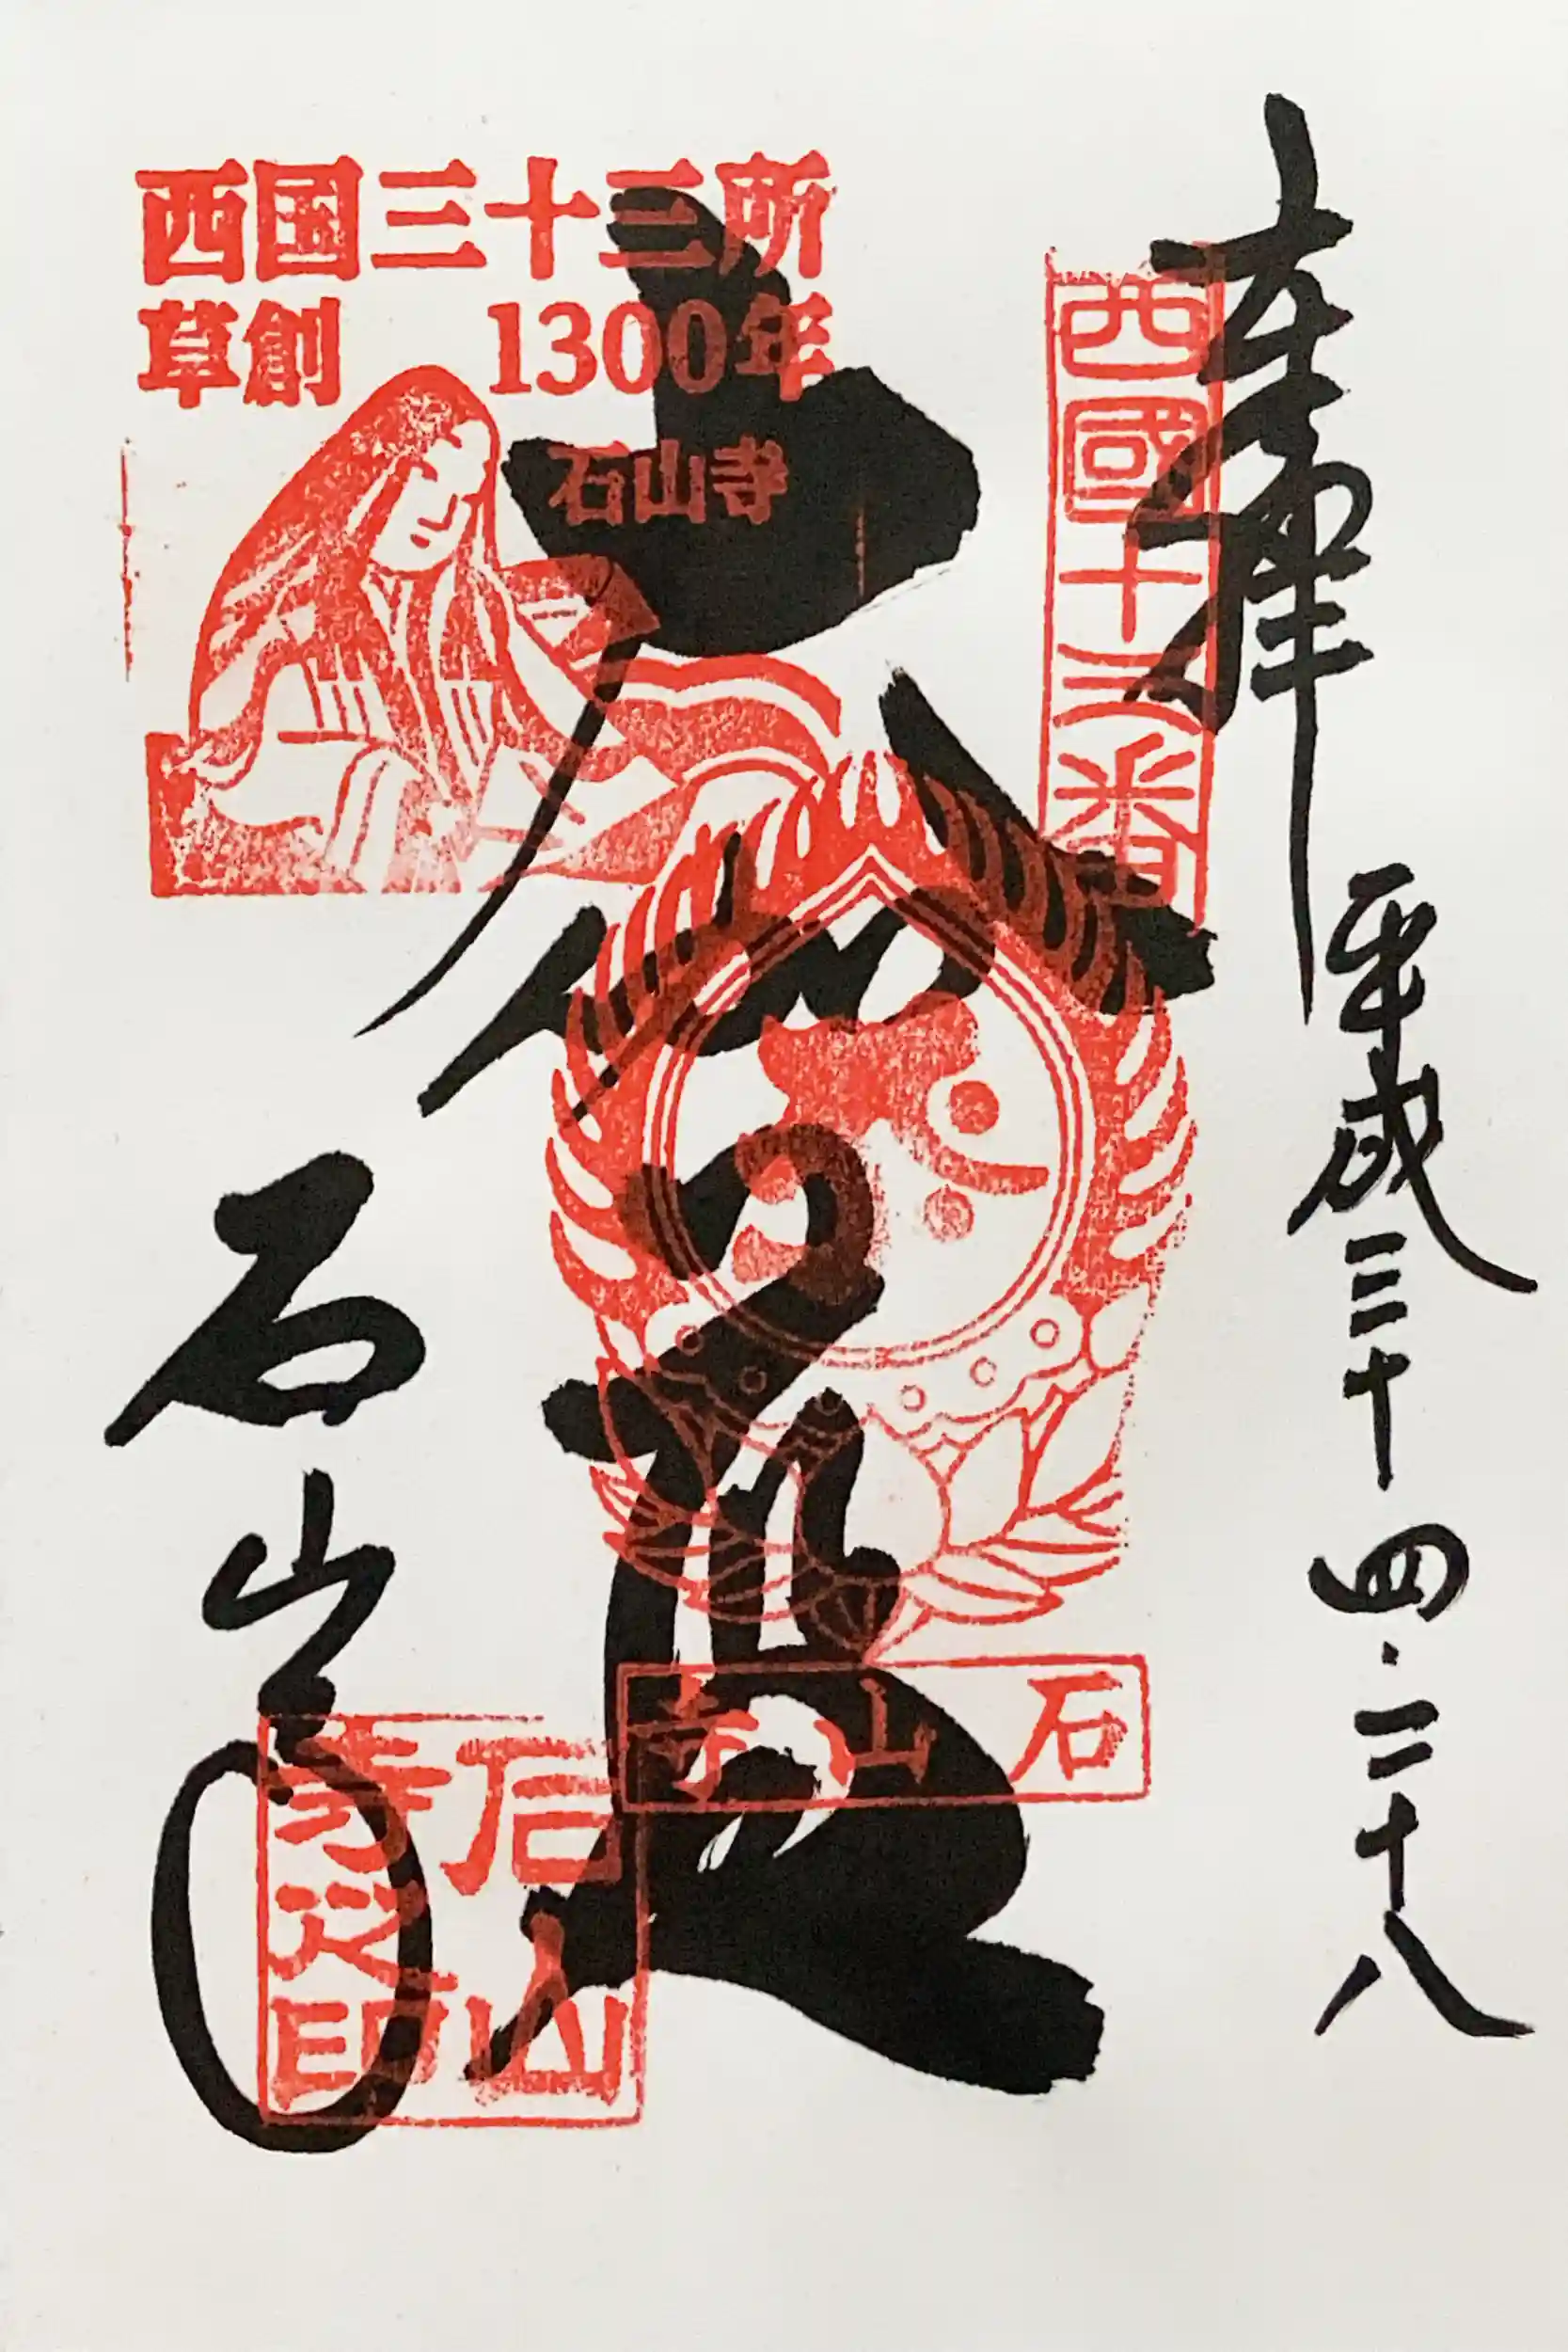 奉拝
平成三十 四・二十八
西國十三番
大伽藍
石山寺
西国三十三所
草創 1300年
石山寺
石山寺
石山
寺之印